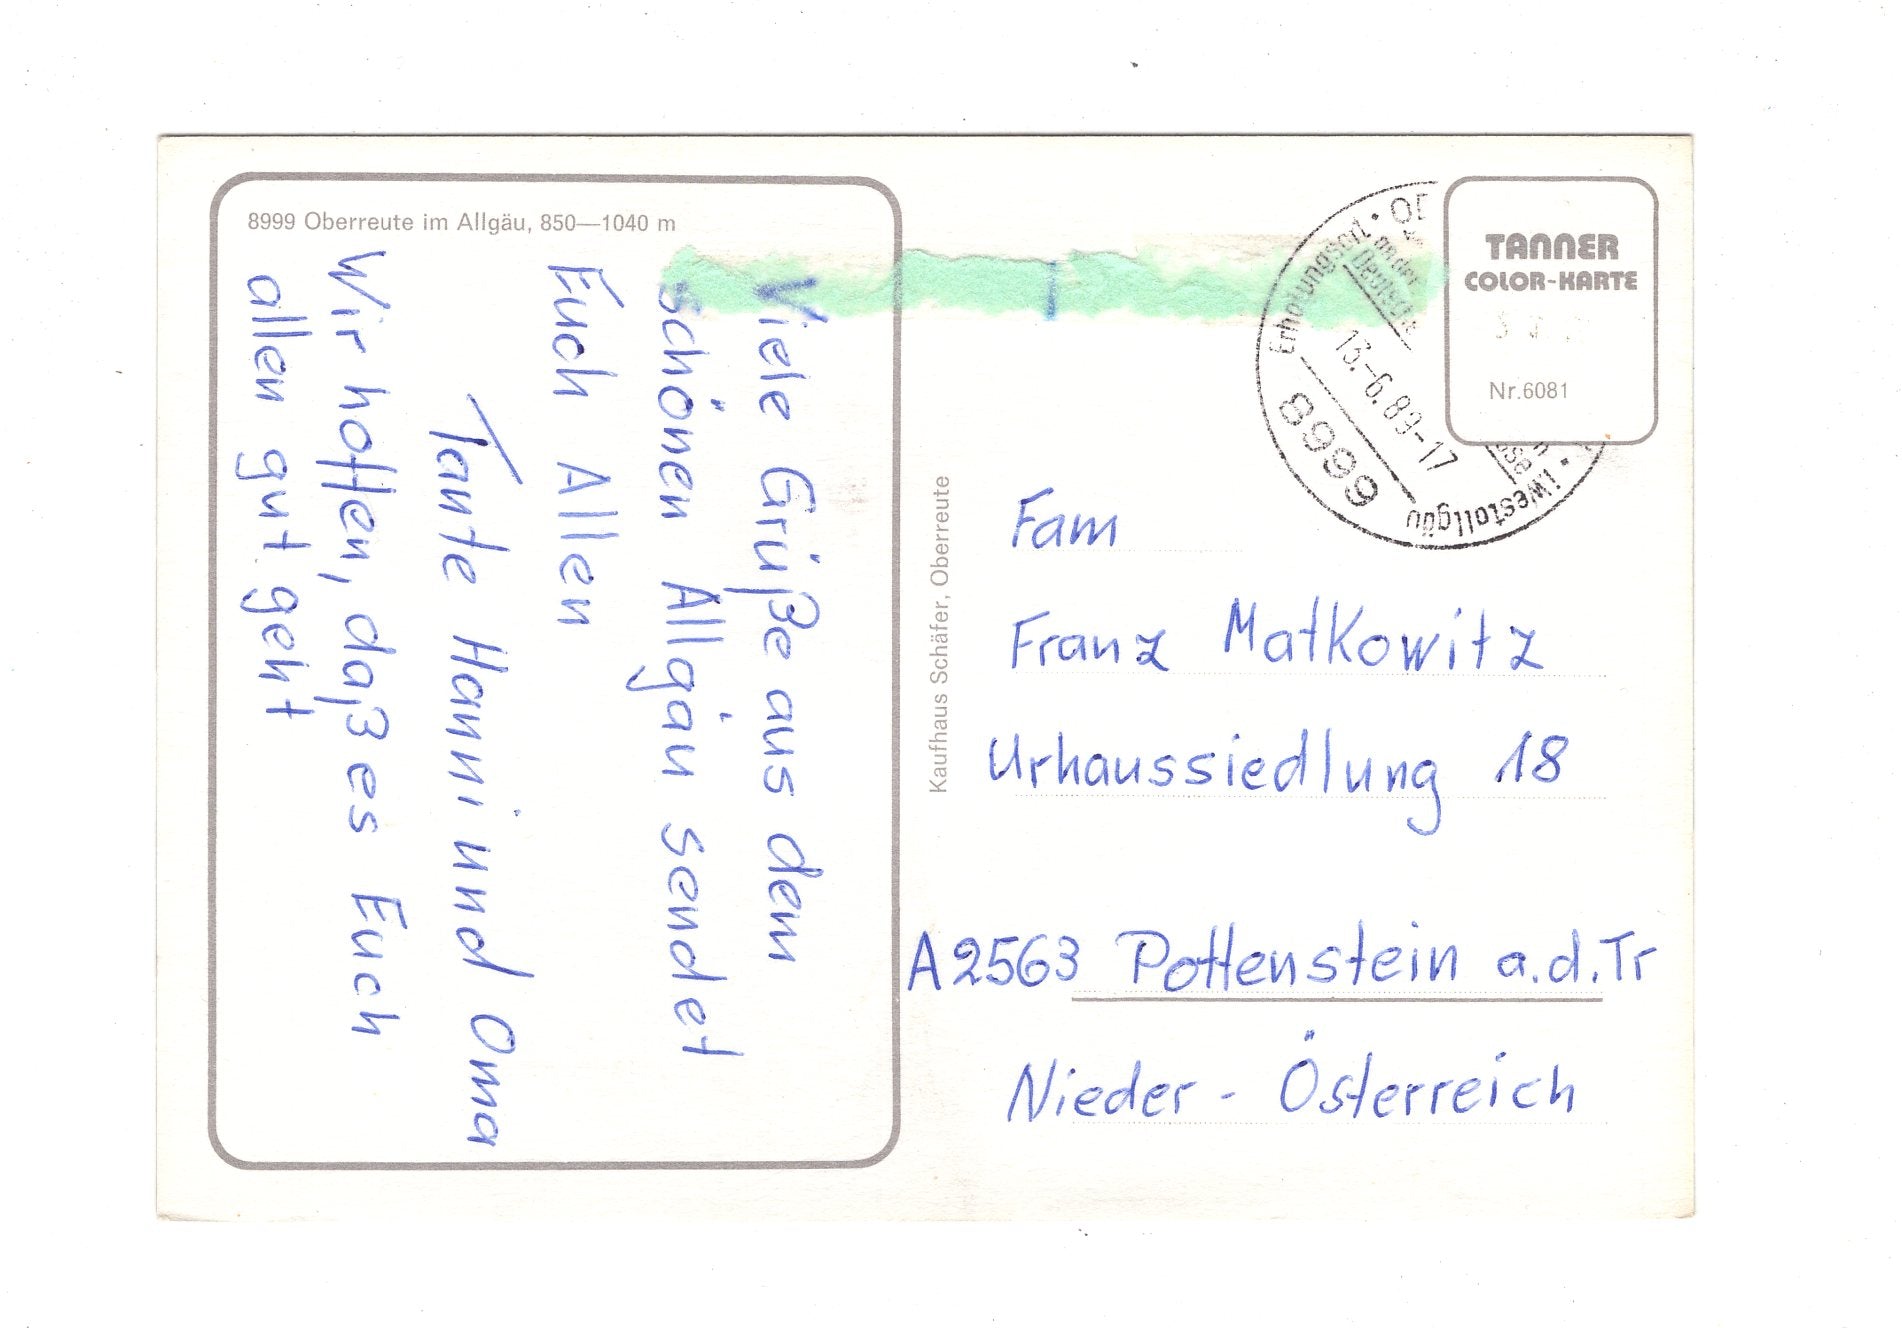 8999 Oberreute im Allgäu, 850—1040 m
Viele Grüße aus dem
schönen Allgäu sendet
Euch Allen
Tante Hanni und Oma
Wir hoffen, daß es Euch
allen gut geht
Kaufhaus Schäfer, Oberreute
Erholungsort • OB
an der
Deutsche
13.-6.89-17
8999
i.Westallgäu
TANNER
COLOR-KARTE
Nr.6081
Fam
Franz Matkowitz
Urhaussiedlung 18
A2563 Pottenstein a.d.Tr
Nieder - Österreich